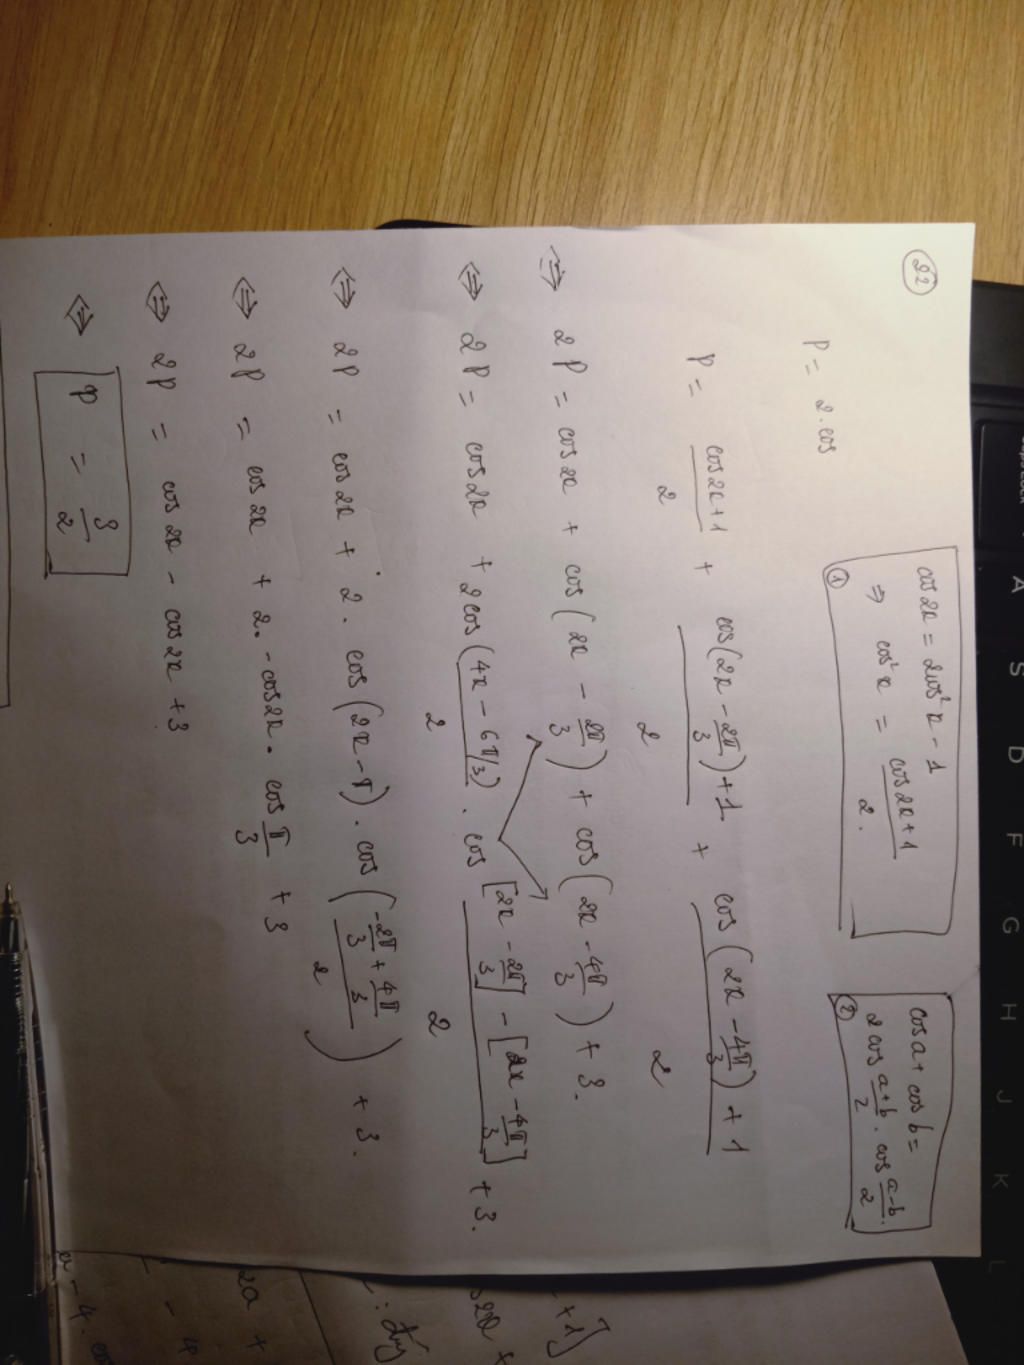 22
cos2x = 2cos²x - 1
⇒ cos²x = (cos2x+1)/2.
①
cosa + cosb =
2cos (a+b)/2 . cos (a-b)/2.
②
P = 2.cos
P = (cos2x+1)/2 + (cos(2x - 2π/3)+1)/2 + (cos(2x - 4π/3)+1)/2
⇔ 2P = cos2x + cos(2x - 2π/3) + cos(2x - 4π/3) + 3.
⇔ 2P = cos2x + 2cos(4x - 6π/3)/2 . cos [2x - 2π/3] - [2x - 4π/3]/2 + 3.
⇔ 2P = cos2x + 2. cos(2x - π). cos((-2π/3 + 4π/3)/2) + 3.
⇔ 2P = cos2x + 2. -cos2x. cos π/3 + 3
⇔ 2P = cos2x - cos2x + 3
⇔ P = 3/2
A S D F G H J K L